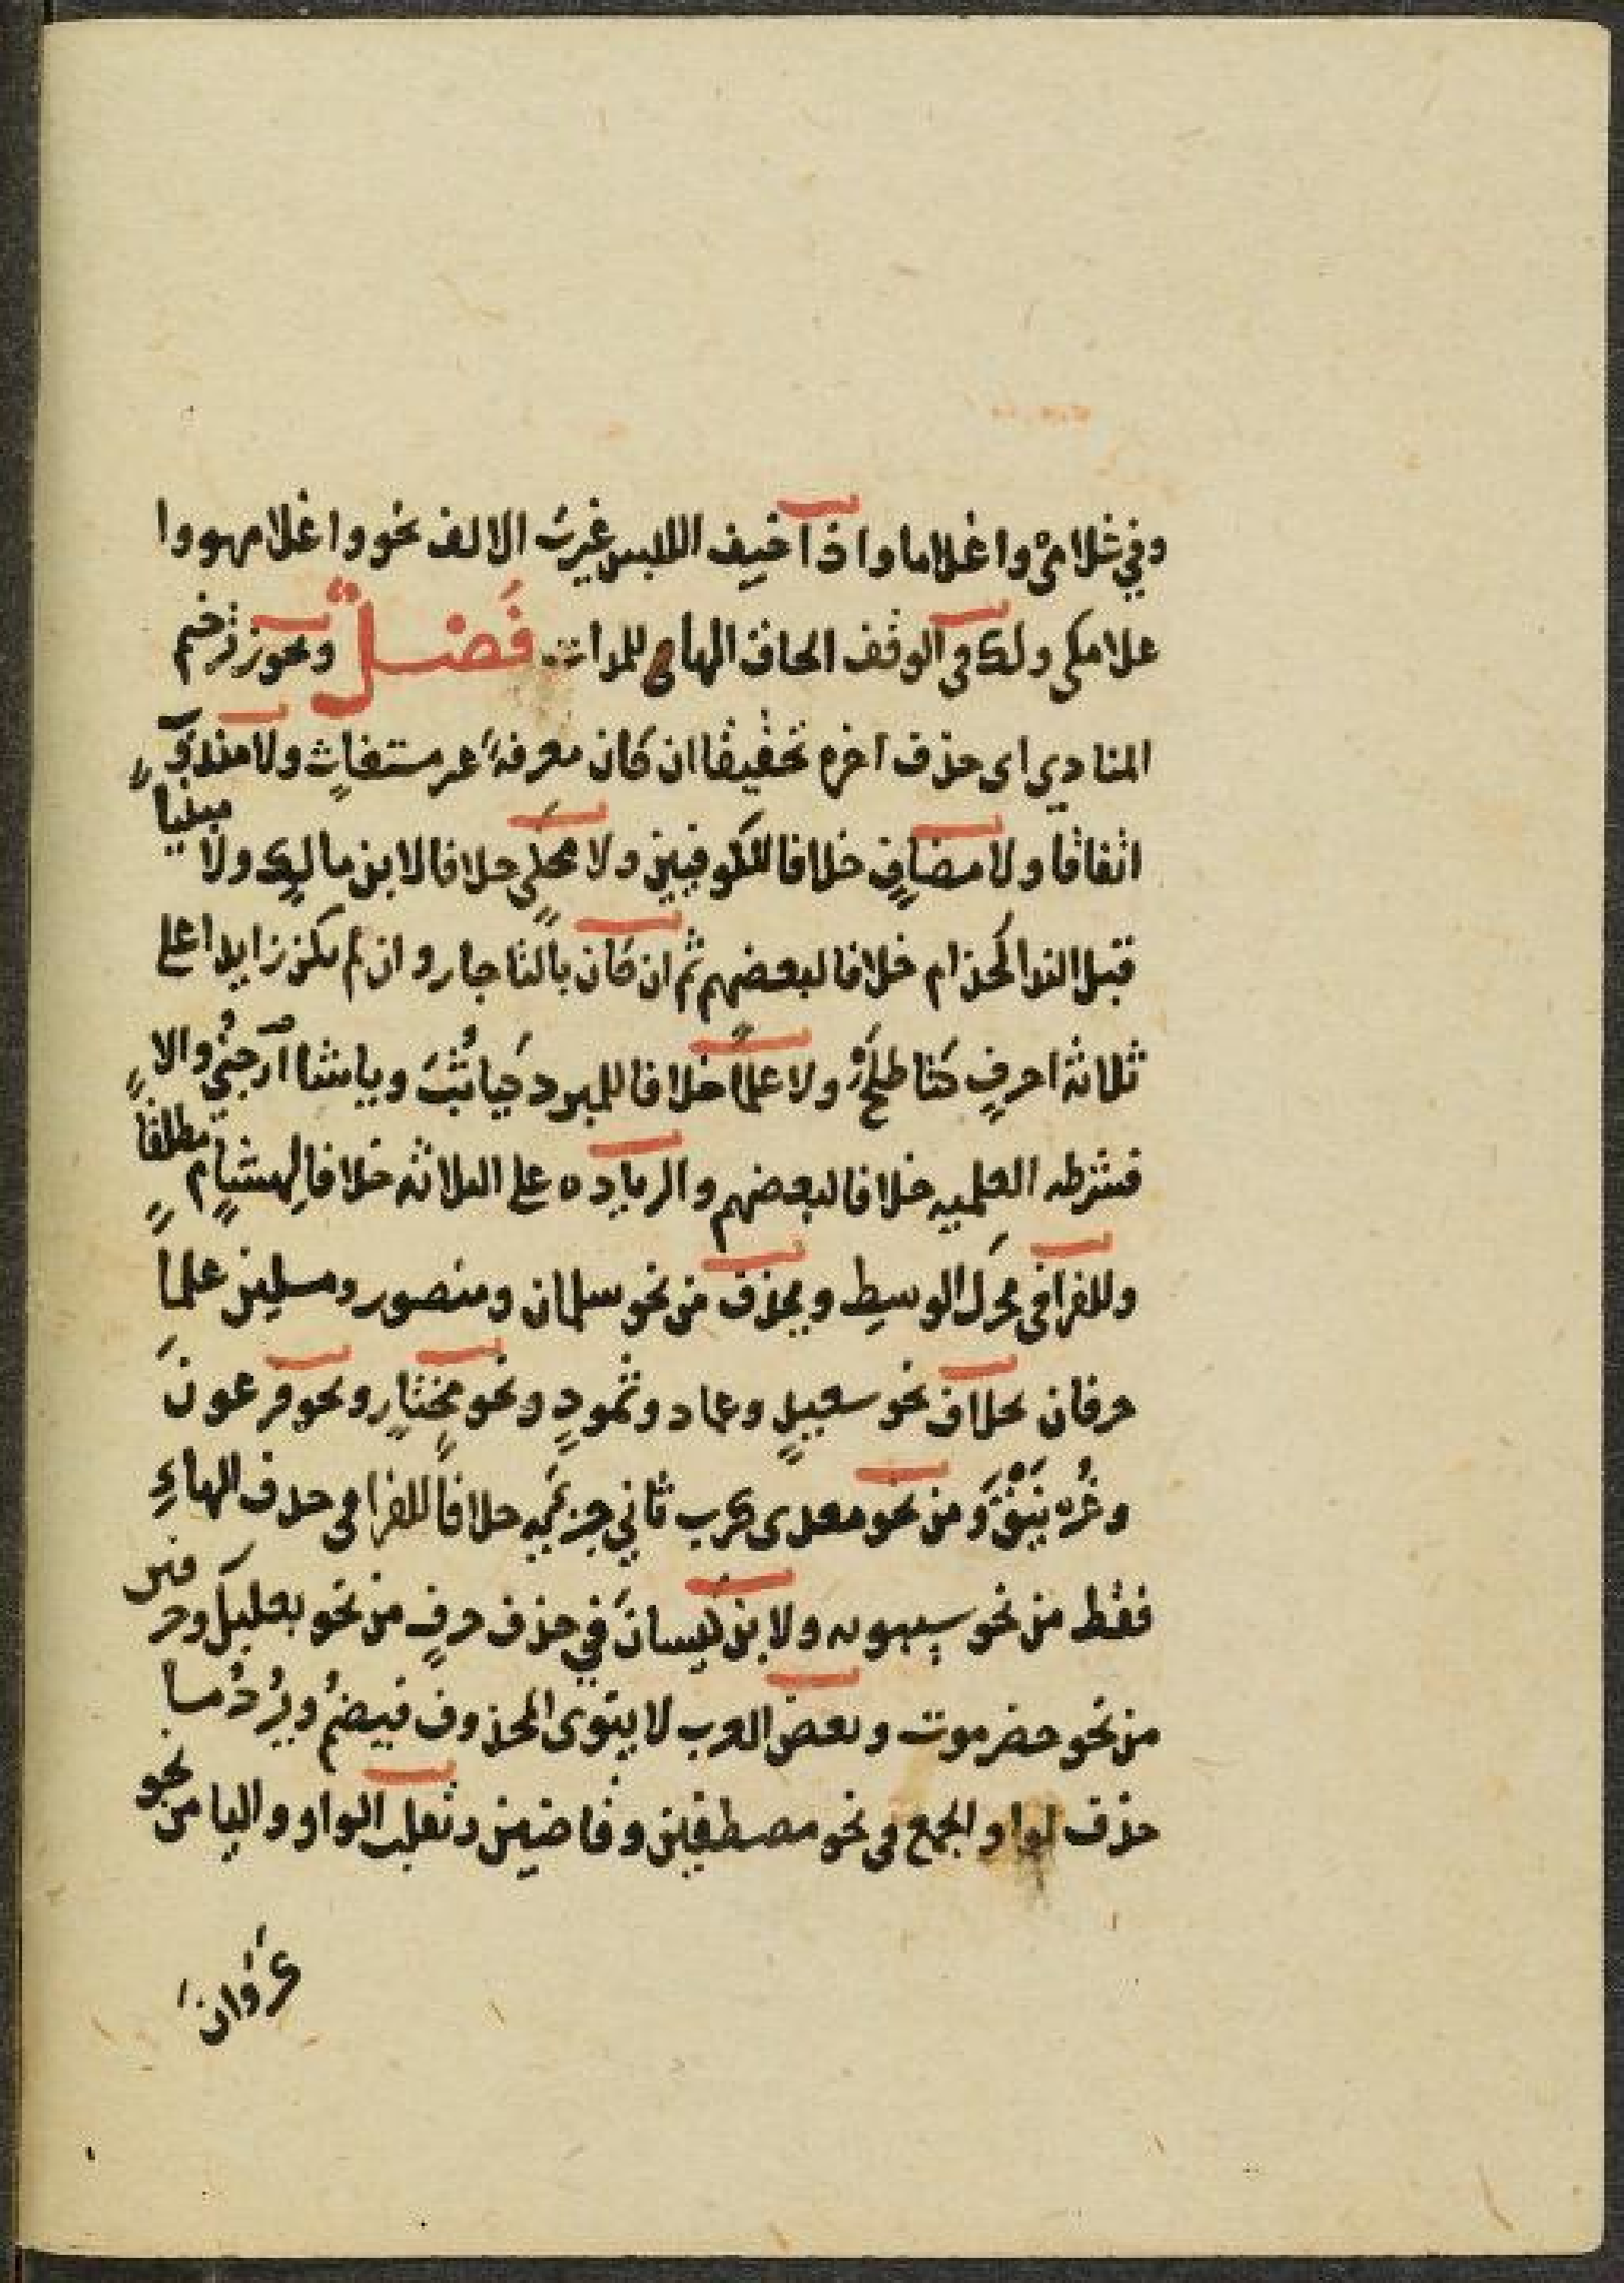 وفي غلامي واغلاما واذا خيف اللبس غيرت الالف نحو واغلامهو وا
غلامكي ولك في الوقف الحاق الهاء للمدات فَصْل ويجوز ترخيم
المنادي اي حذف اخره تخفيفا ان كان معرفةً غير مستغاثٍ ولا مندوب
اتفاقا ولا مضافٍ خلافا للكوفيين ولا محكيٍ خلافا لابن مالك ولا مبنياً
قبل الندا كحذام خلافا لبعضهم ثم ان كان بالتا جاز وان لم يكن زايدا على
ثلاثة احرفٍ كيا طلحَ ولا علماً خلافا للمبرد كياثُبَ وياشا ارجني والا
فشرطه العلميه خلافا لبعضهم والزياده على الثلاثه خلافا لهشامٍ مطلقا
وللفرا في محرك الوسط ويحذف من نحو سلمان ومنصور ومسكين علماً
حرفان بخلاف نحو سعيدٍ وعماد وثمودٍ ونحو مختارٍ ونحو فرعونَ
وغُرنَيْقَ ومن نحو معدي كرب ثاني جزئيه خلافاً للفرا في حذف الهاءِ
فقط من نحو سيبويه ولابن كيسانَ في حذف حرفٍ من نحو بعلبك وحرفين
من نحو حضرموت وبعض العرب لا ينوي المحذوف فيضمُ ويُردُ ما
حذف لواو الجمع في نحو مصطفين وقاضين وتقلب الواو واليا من نحو
غزوان